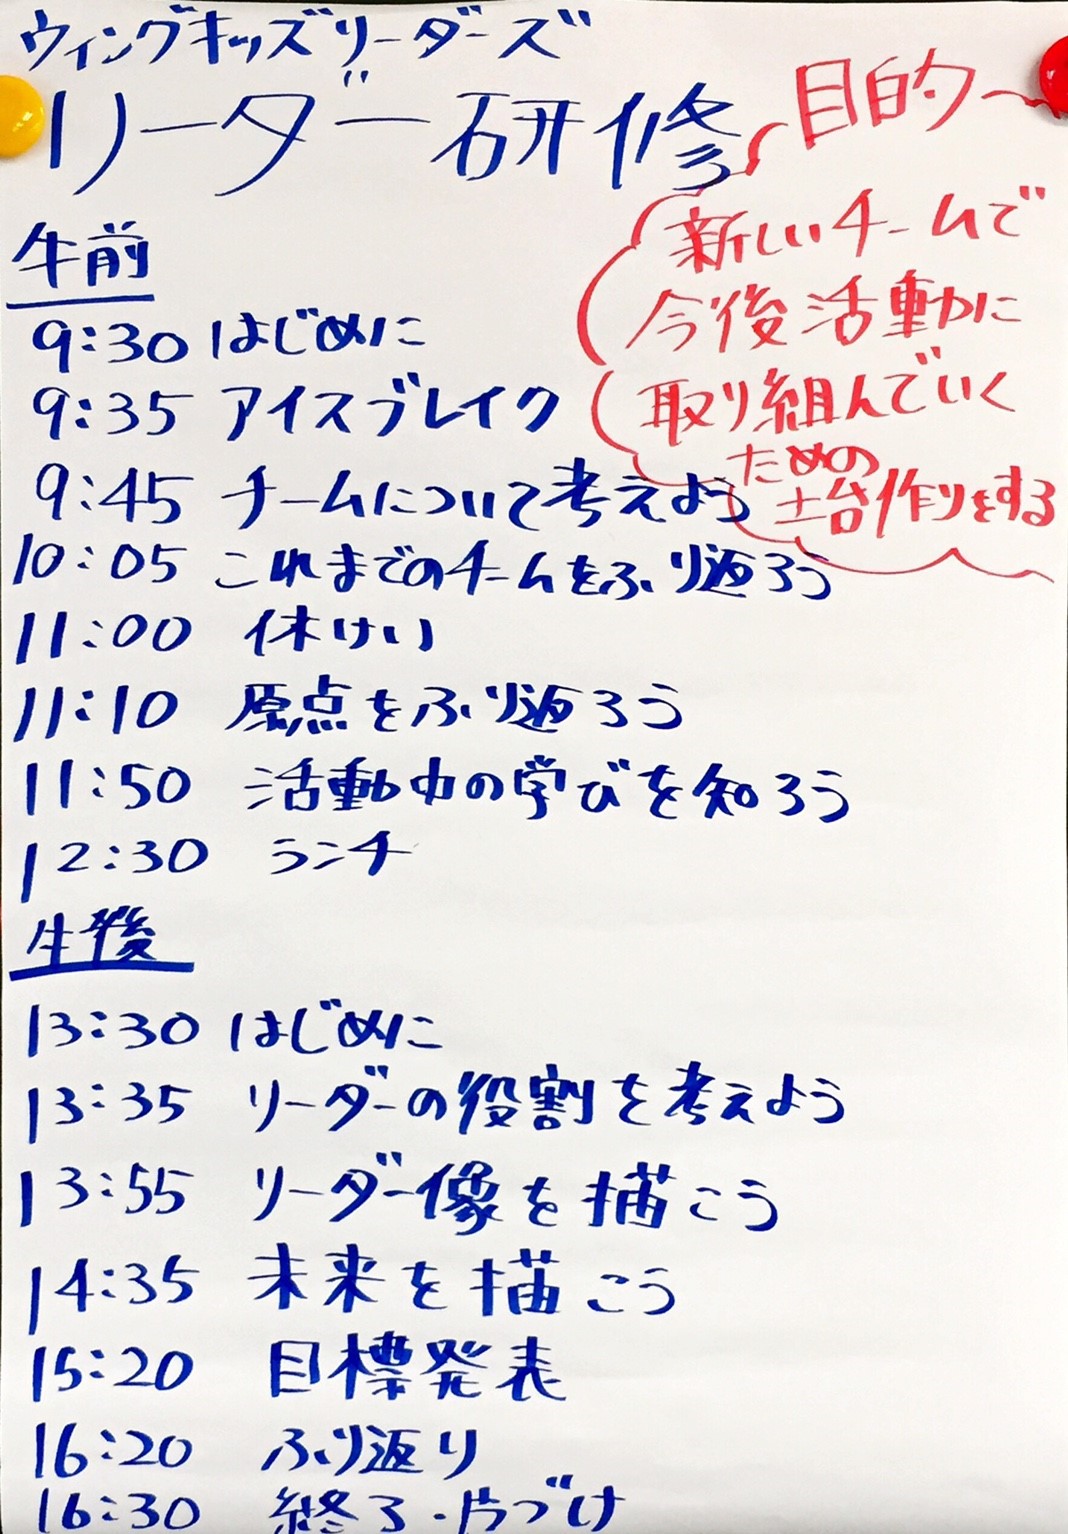 ウィングキッズリーダーズ
リーダー研修
目的
新しいチームで
今後活動に
取り組んでいく
ための
土台作りをする
午前
9:30 はじめに
9:35 アイスブレイク
9:45 チームについて考えよう
10:05 これまでのチームをふり返ろう
11:00 休けい
11:10 原点をふり返ろう
11:50 活動中の学びを知ろう
12:30 ランチ
午後
13:30 はじめに
13:35 リーダーの役割を考えよう
13:55 リーダー像を描こう
14:35 未来を描こう
15:20 目標発表
16:20 ふり返り
16:30 終了・片づけ